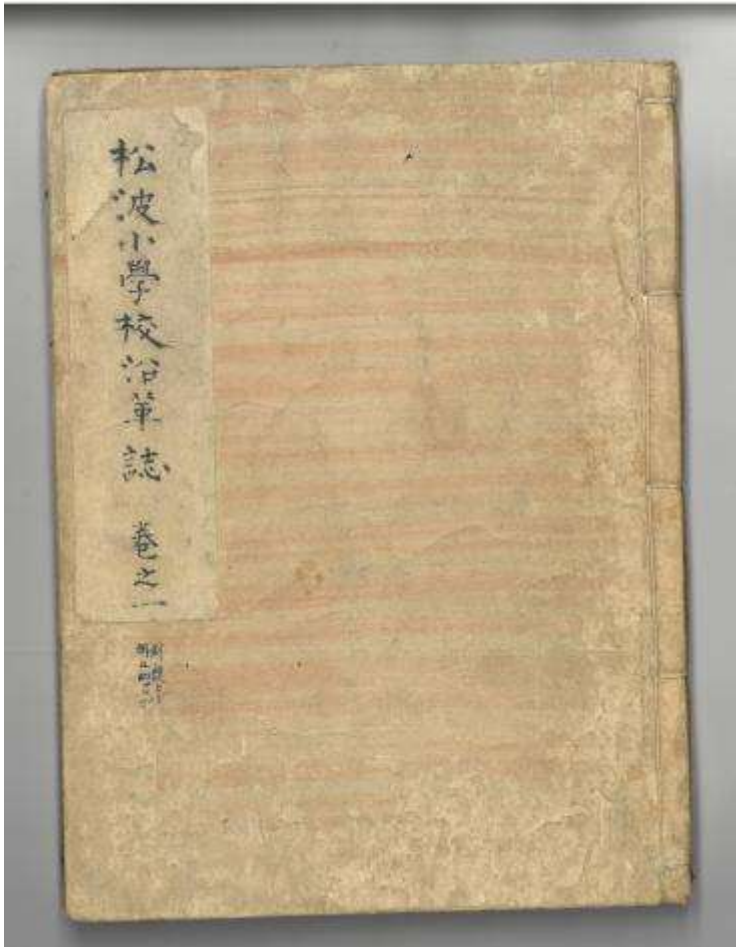 松波小學校沿革誌 巻之一